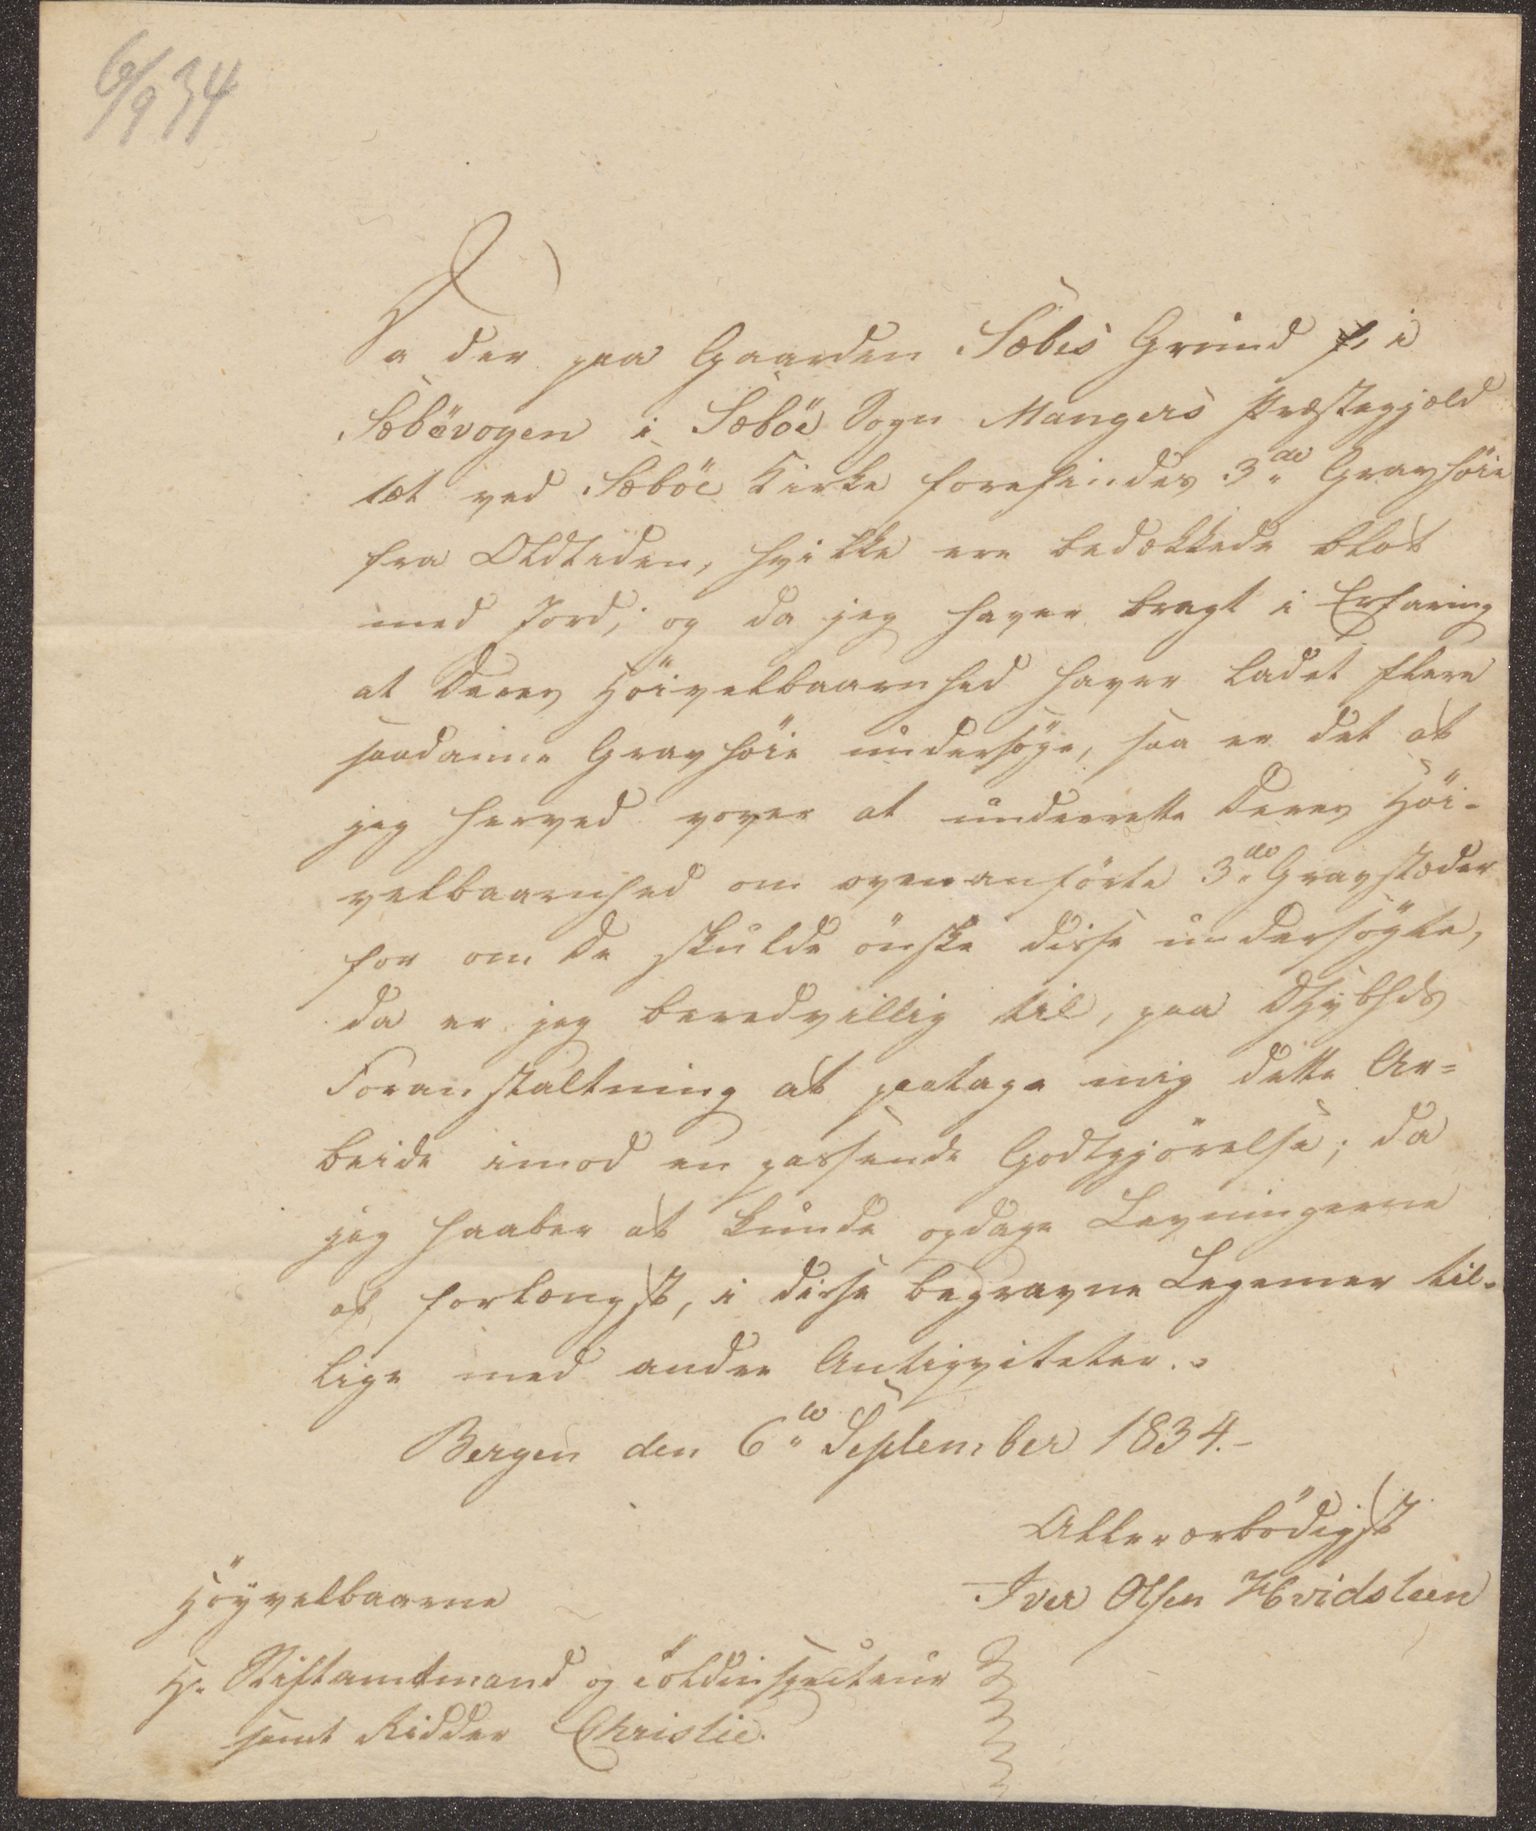 6/9 34
Da der paa Gaarden Sæbes Grund i
Sæbövogen i Sæböe Sogn Mangers Præstegjæld
tæt ved Sæböe Kirke forefindes 3de Gravhöie
fra Oldtiden, hvilke ere bedækkede blot
med Jord; og da jeg haver bragt i Erfaring
at Deres Höivelbaarnhed haver ladet flere
saadanne Gravhöie undersöge, saa er det at
jeg herved vover at underrette Deres Höi-
velbaarnhed om ovenanförte 3de Gravstæder
for om De skulde önske disse undersögte,
da er jeg beredvillig til, paa
Foranstaltning at paatage mig dette Ar=
beide imod en passende Godtgjörelse; da
jeg haaber at kunde opdage Levningerne
af forlængst, i disse begravne Legemer til-
lige med andre Antiqviteter.
Bergen den 6te September 1834.-
Allerærbödigst
Iver Olsen Hvidsteen
Höyvelbaarne
Hr Stiftamtmand og Toldinspecteur
samt Ridder Christie.